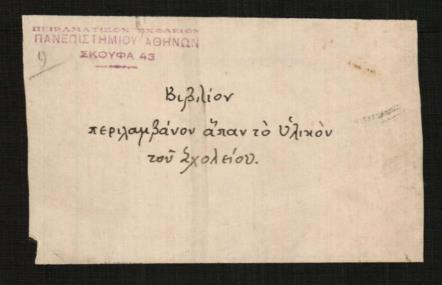 ΠΕΙΡΑΜΑΤΙΚΟΝ ΣΧΟΛΕΙΟΝ
ΠΑΝΕΠΙΣΤΗΜΙΟΥ ΑΘΗΝΩΝ
ΣΚΟΥΦΑ 43
9
Βιβλίον
περιλαμβάνον ἅπαν τὸ ὑλικὸν
τοῦ Σχολείου.